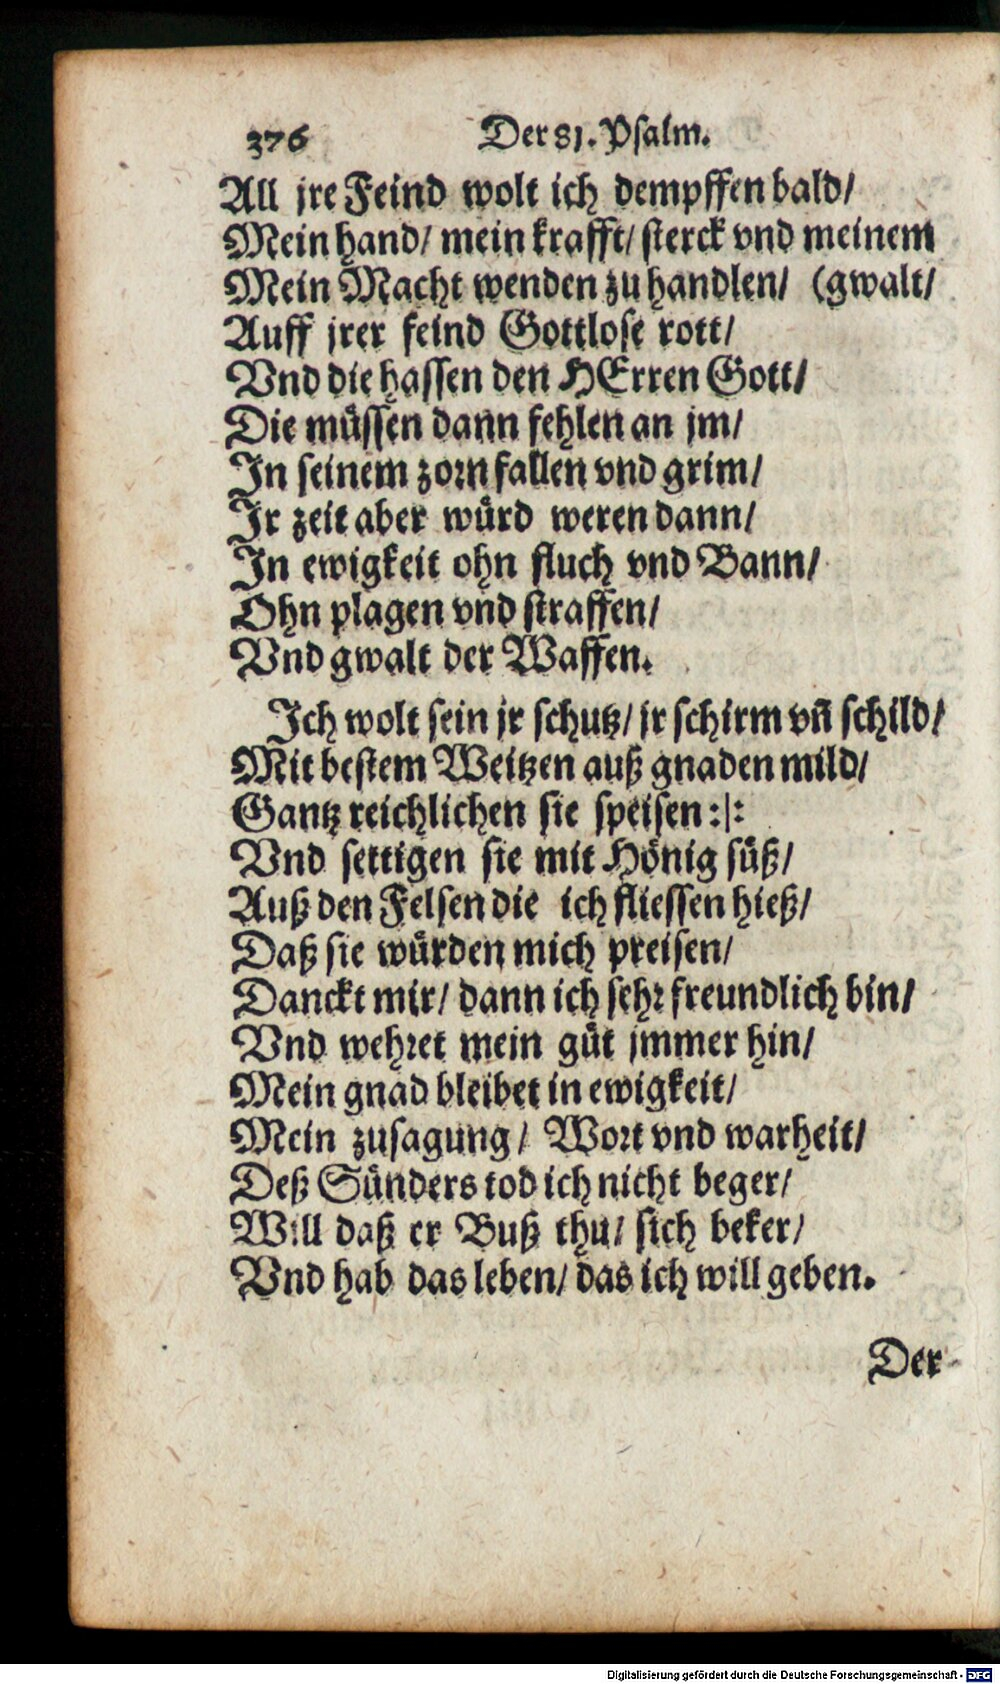 376 Der 81. Psalm.
All jre Feind wolt ich dempffen bald/
Mein hand/ mein krafft/ sterck vnd meinem
Mein Macht wenden zu handlen/ (gwalt/
Auff jrer feind Gottlose rott/
Vnd die hassen den HErren Gott/
Die müssen dann fehlen an jm/
In seinem zorn fallen vnd grim/
Ir zeit aber würd weren dann/
In ewigkeit ohn fluch vnd Bann/
Ohn plagen vnd straffen/
Vnd gwalt der Waffen.
Ich wolt sein jr schutz/ jr schirm vñ schild/
Mit bestem Weitzen auß gnaden mild/
Gantz reichlichen sie speisen :|:
Vnd settigen sie mit Hönig süß/
Auß den Felsen die ich fliessen hieß/
Daß sie würden mich preisen/
Danckt mir/ dann ich sehr freundlich bin/
Vnd wehret mein güt jmmer hin/
Mein gnad bleibet in ewigkeit/
Mein zusagung/ Wort vnd warheit/
Deß Sünders tod ich nicht beger/
Will daß er Buß thu/ sich beker/
Vnd hab das leben/ das ich will geben.
Der
Digitalisierung gefördert durch die Deutsche Forschungsgemeinschaft - DFG